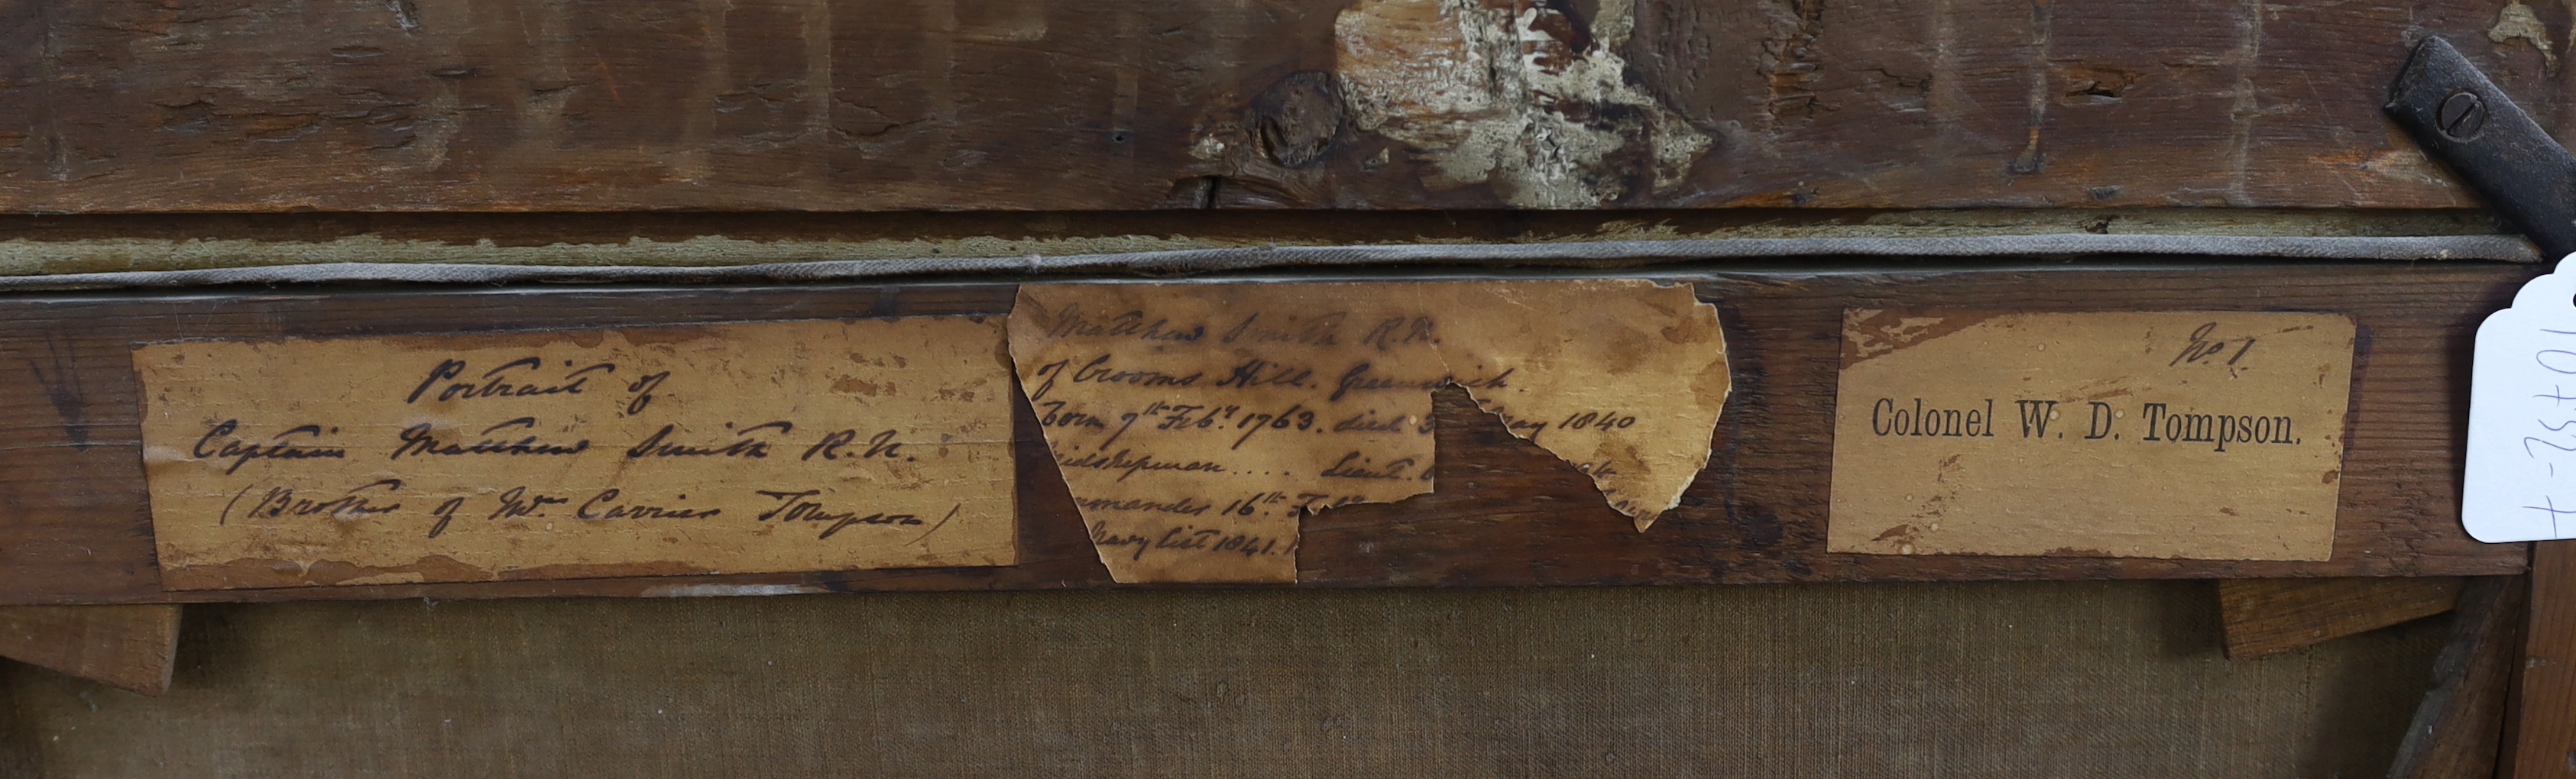 Portrait of
Captain Matthew Smith R.N.
(Brother of Mrs Carrier Tompson)
Matthew Smith R.N.
of Crooms Hill. Greenwich.
Born 9th Feby 1763. died 3 May 1840
idshipman .... Lieut.
mmander 16th
Navy List 1841.
No 1.
Colonel W. D. Tompson.